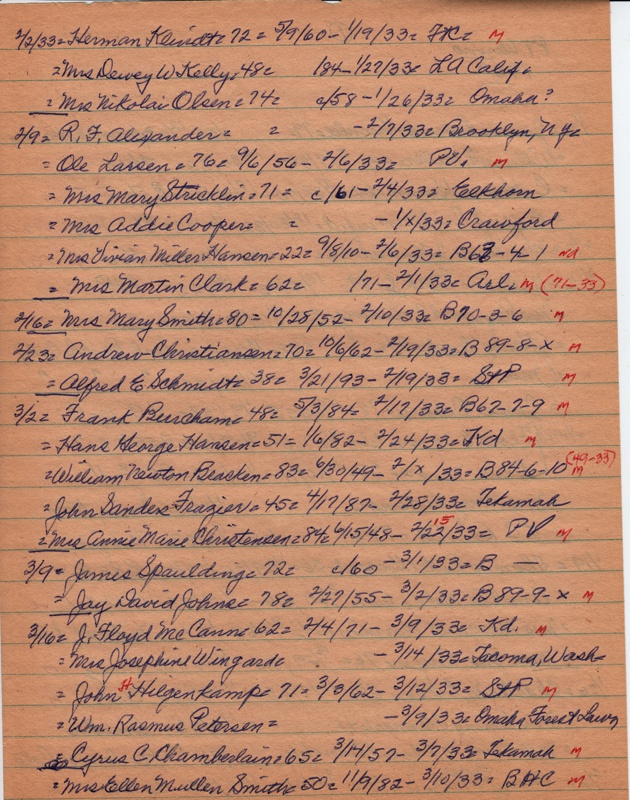 2/2/33 = Herman Klindt = 72 = 5/9/60 - 1/19/33 = FHC = M
= Mrs Dewey W Kelly = 48 = 184 - 1/27/33 = LA Calif.
= Mrs Nikolai Olsen = 74 = c/58 - 1/26/33 = Omaha?
2/9 = R. F. Alexander = = - 2/7/33 = Brooklyn, N.Y.
= Ole Larsen = 76 = 9/6/56 - 2/6/33 = PV. M
= Mrs Mary Stricklin = 71 = c/61 - 2/4/33 = Elkhorn
= Mrs Addie Cooper = = - 1/x/33 = Crawford
= Mrs Vivian Miller Hansen = 22 = 9/8/10 - 2/6/33 = B62-4-1 Nd
= Mrs Martin Clark = 62 = /71 - 2/1/33 = Arl. M (71-33)
2/16 = Mrs Mary Smith = 80 = 10/28/52 - 2/10/33 = B70-3-6 M
2/23 = Andrew Christiansen = 70 = 10/6/62 - 2/19/33 = B89-8-x M
= Alfred E Schmidt = 38 = 3/21/93 - 2/19/33 = StP M
3/2 = Frank Burcham = 48 = 5/3/84 = 2/17/33 = B67-7-9 M
= Hans George Hansen = 51 = 1/6/82 - 2/24/33 = Kd M
= William Newton Bracken = 83 = 6/30/49 - 2/x/33 = B84-6-10 (49-33) M
= John Sanders Frazier = 45 = 4/17/87 - 2/28/33 = Tekamah
= Mrs Annie Marie Christensen = 84 = 6/15/48 - 2/22/33 = 15 PV M
3/9 = James Spaulding = 72 = c/60 - 3/1/33 = B —
= Jay David Johns = 78 = 2/27/55 - 3/2/33 = B89-9-x M
3/16 = J. Floyd McCann = 62 = 2/4/71 - 3/9/33 = Kd. M
= Mrs Josephine Wingard = - 3/14/33 = Tacoma, Wash =
= John H Hilgenkamp = 71 = 3/3/62 - 3/12/33 = StP M
= Wm. Rasmus Petersen = - 3/9/33 = Omaha Forest Lawn
= Cyrus C. Chamberlain = 65 = 3/14/57 - 3/7/33 = Tekamah M
= Mrs Ellen Mullen Smith = 50 = 11/9/82 - 3/10/33 = BHC M